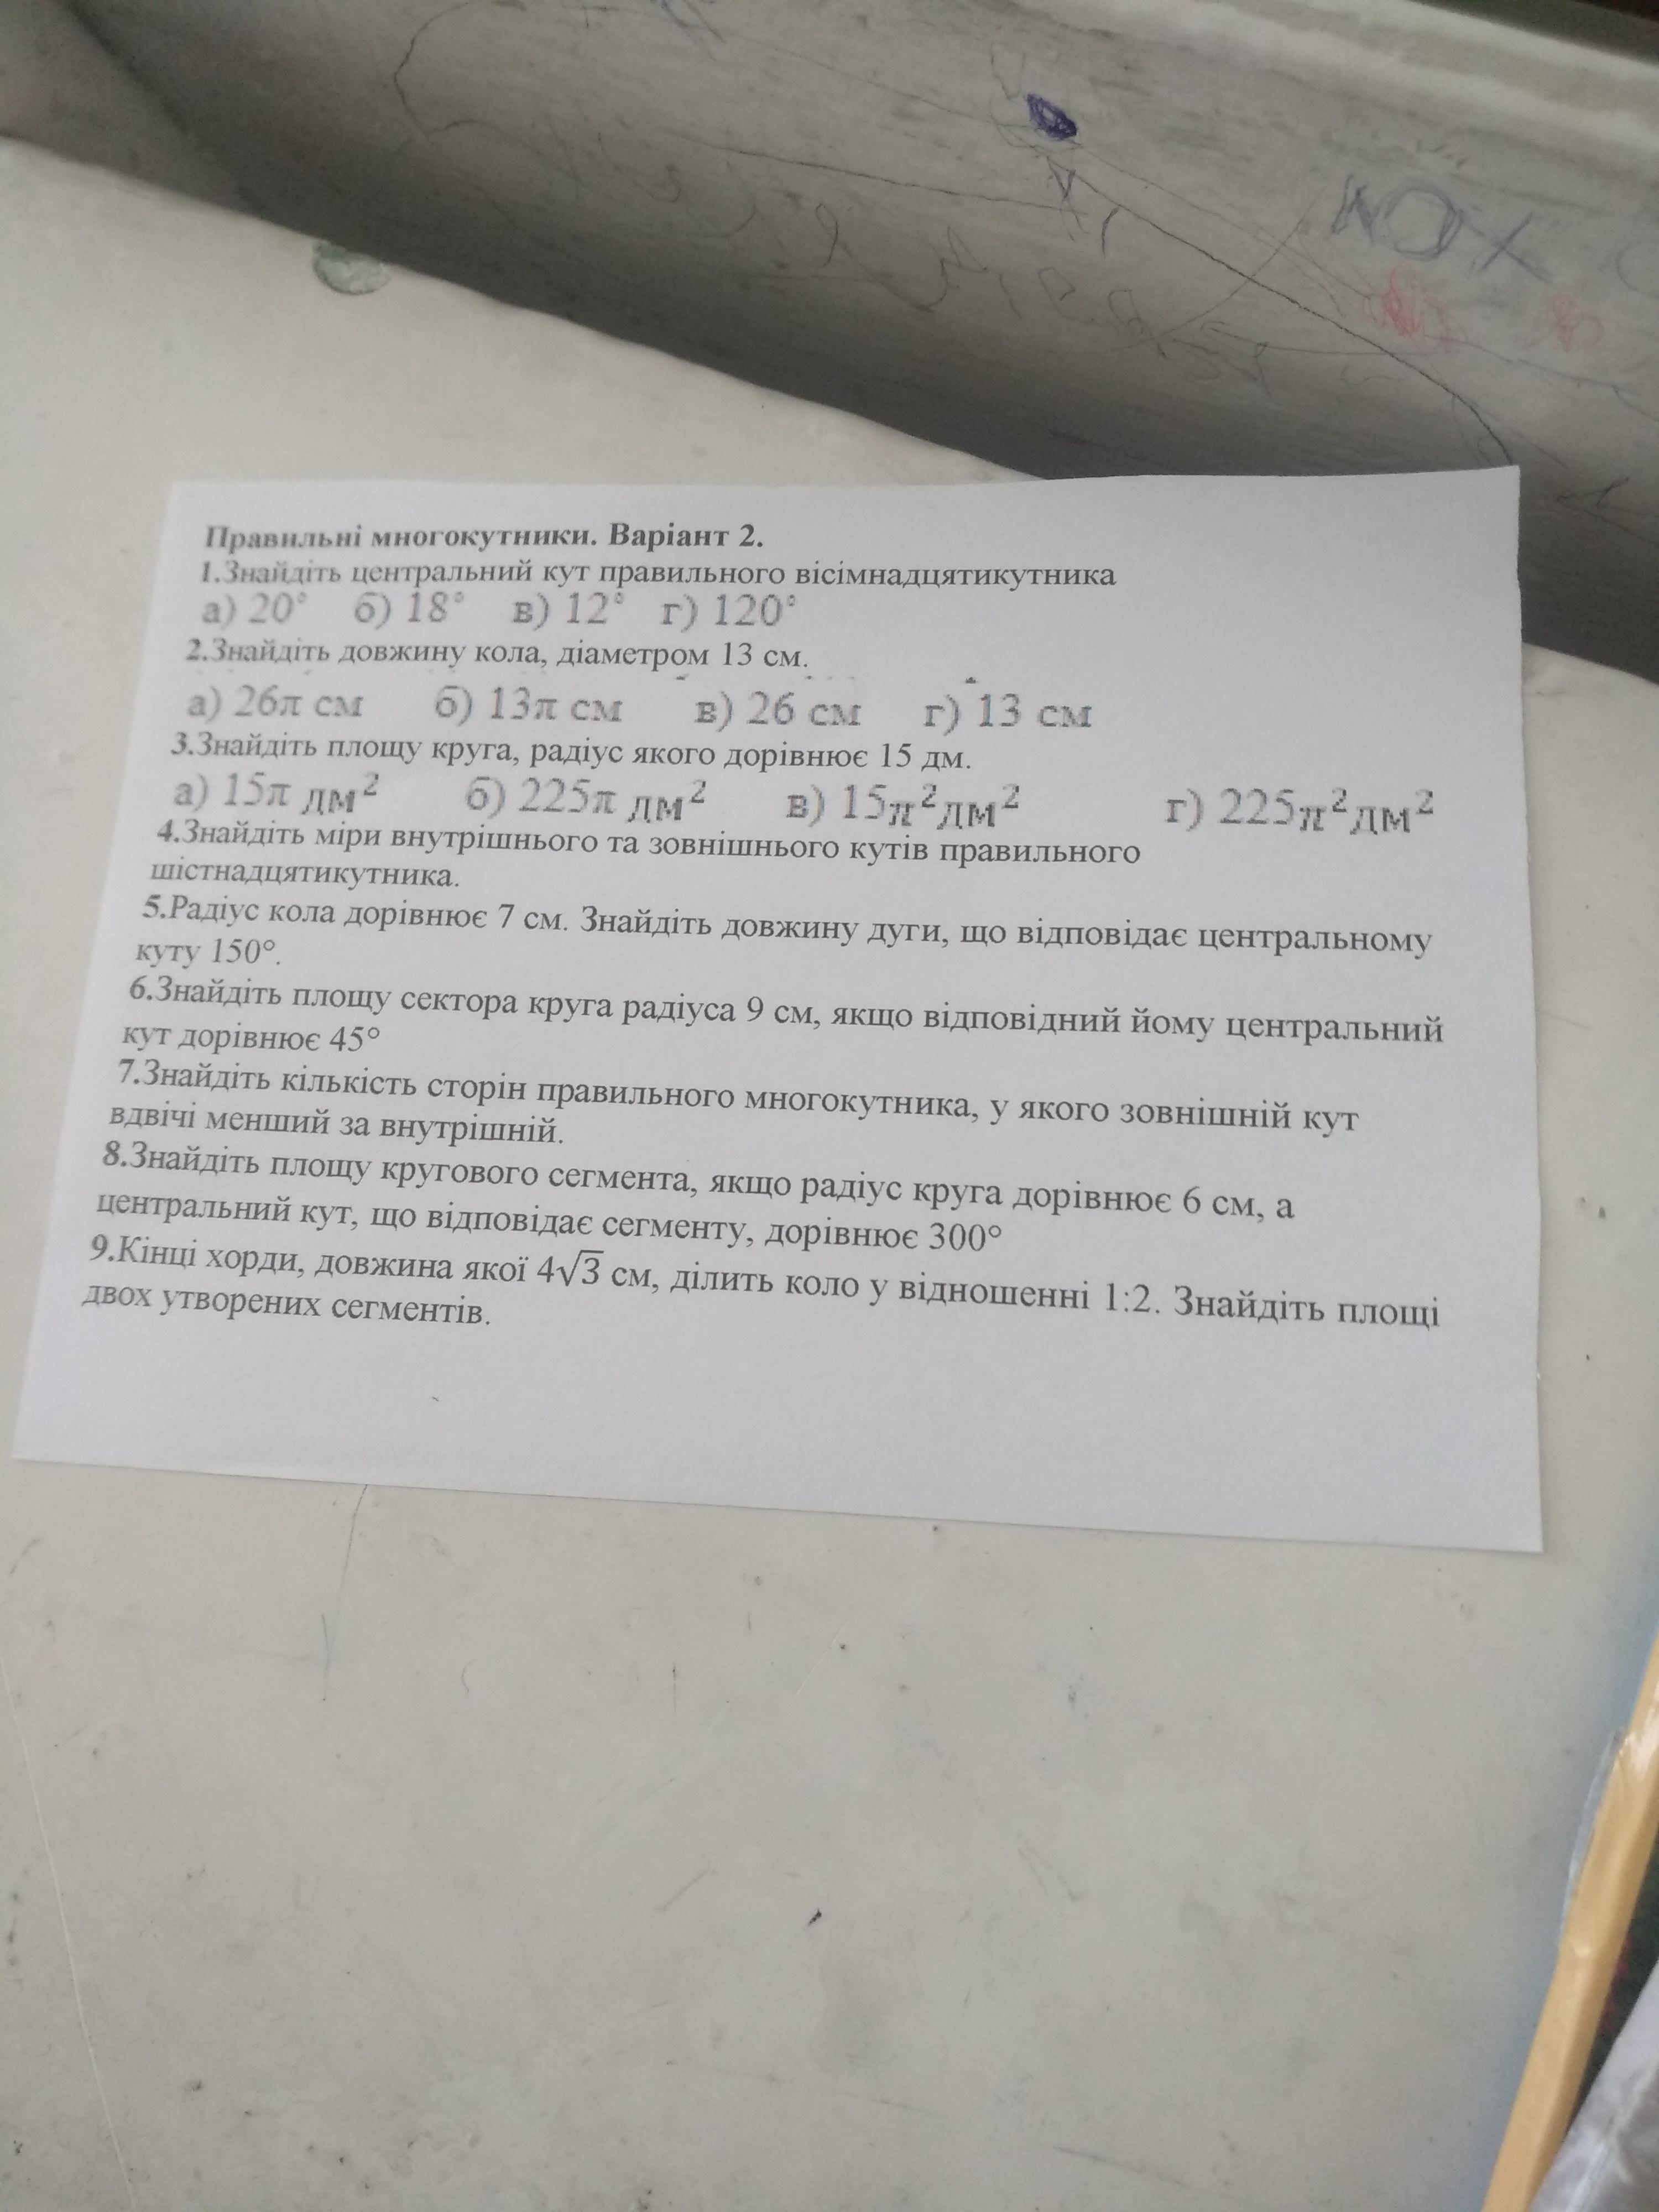 Правильні многокутники. Варіант 2.
1.Знайдіть центральний кут правильного вісімнадцятикутника
а) 20° б) 18° в) 12° г) 120°
2.Знайдіть довжину кола, діаметром 13 см.
а) 26π см б) 13π см в) 26 см г) 13 см
3.Знайдіть площу круга, радіус якого дорівнює 15 дм.
а) 15π дм² б) 225π дм² в) 15π²дм² г) 225π²дм²
4.Знайдіть міри внутрішнього та зовнішнього кутів правильного
шістнадцятикутника.
5.Радіус кола дорівнює 7 см. Знайдіть довжину дуги, що відповідає центральному
куту 150°.
6.Знайдіть площу сектора круга радіуса 9 см, якщо відповідний йому центральний
кут дорівнює 45°
7.Знайдіть кількість сторін правильного многокутника, у якого зовнішній кут
вдвічі менший за внутрішній.
8.Знайдіть площу кругового сегмента, якщо радіус круга дорівнює 6 см, а
центральний кут, що відповідає сегменту, дорівнює 300°
9.Кінці хорди, довжина якої 4√3 см, ділить коло у відношенні 1:2. Знайдіть площі
двох утворених сегментів.